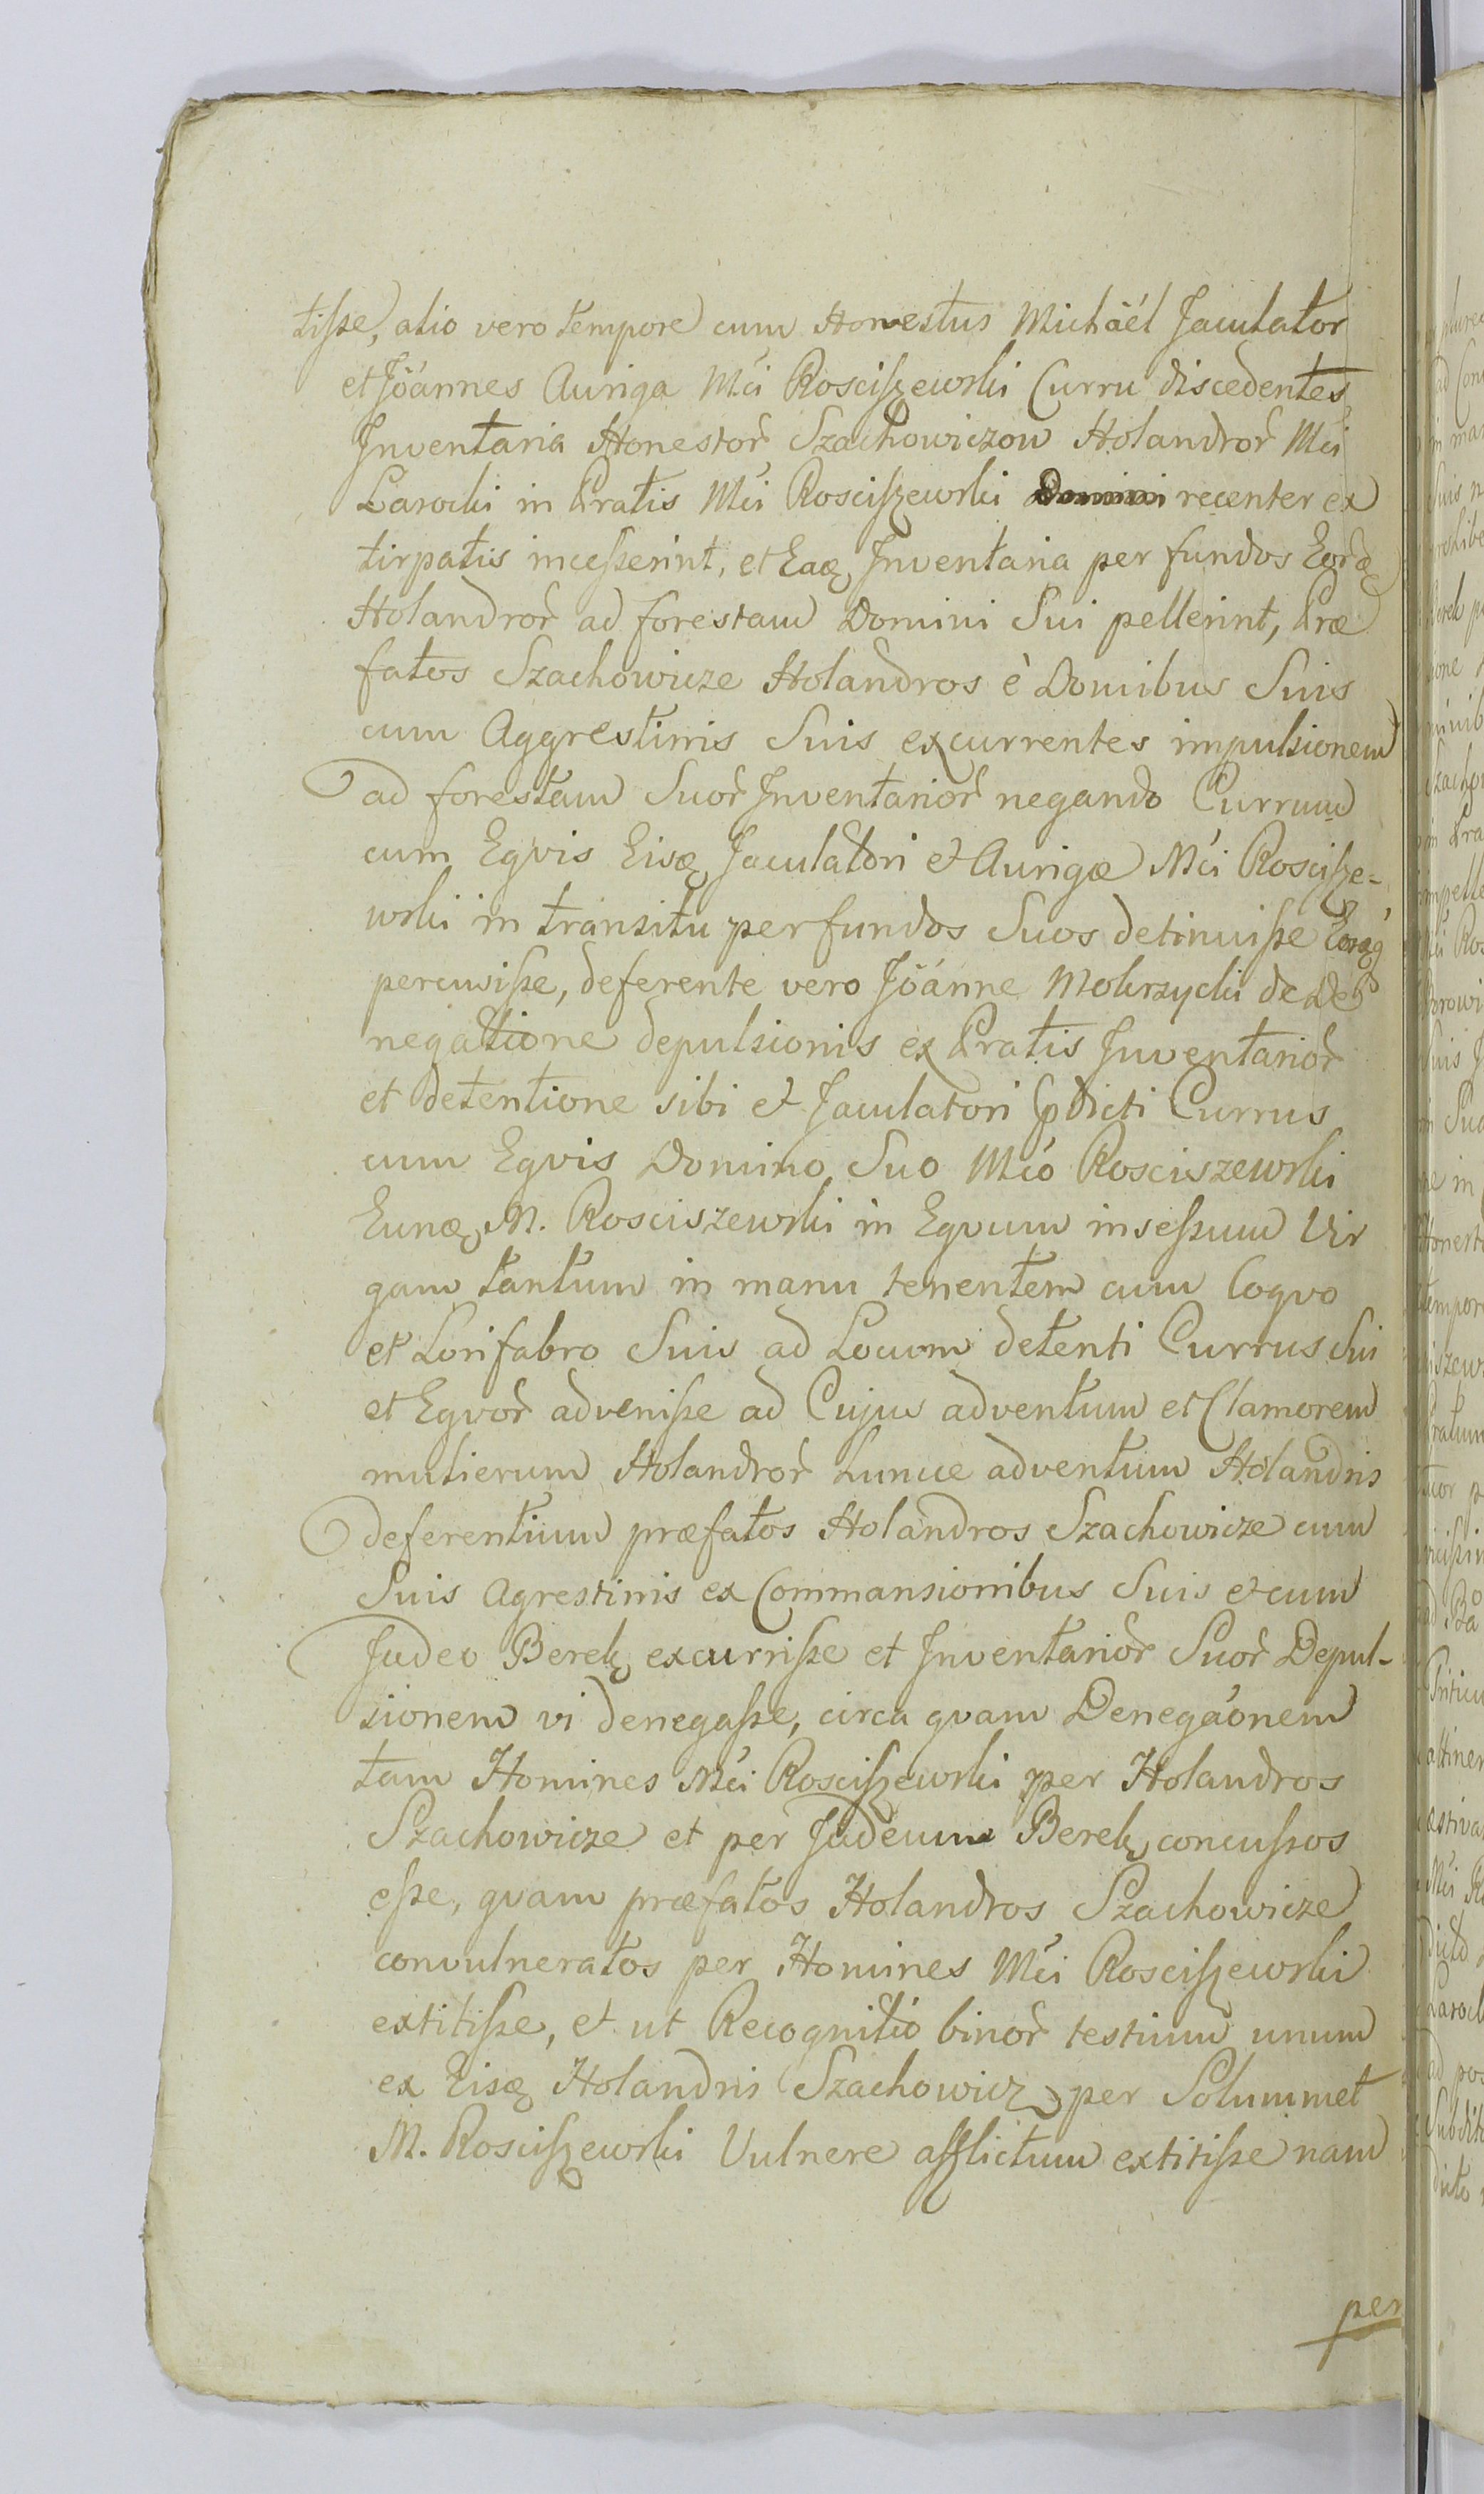 tiſse, alio vero tempore cum Honestus Michäél Jaculator
et Jöánnes Auriga Mci Rosciſzewski Curru discedentes
Inventaria Honestor Szachowiczow Holandror Mci
Larocki in Pratis Mci Rosciſzewski recenter ex
tirpatis inceſserint, et Eaq Inventaria per fundos Eorq
Holandror ad forestam Domini Sui pellerint, Præ
fatos Szachowicze Holandros è Domibus Suis
cum Aggrestinis Suis excurrentes impulsionem
ad forestam Suor Inventarior negando Currum
cum Eqvis Eisq Jaculatori et Aurigæ Mci Rosciſze=
wski in transitu per fundos Suos detinuiſse Eosq
percuſsiſse, deferente vero Jöánne Mokrzycki de De
negatione depulsionis ex Pratis Inventarior
et detentione sibi et Jaculatori pdicti Currus
cum Eqvis Domino Suo Mco Rosciszewski
Eunq M. Rosciszewski in Eqvum inseſsum Vir
gam tantum in manu tenentem cum Coqvo
et Lorifabro Suis ad Locum detenti Currus Sui
et Eqvor adveniſse ad Cujus adventum et Clamorem
mulierum Holandror hunce adventum Holandris
deferentium præfatos Holandros Szachowicze cum
Suis Agrestinis ex Commansionibus Suis et cum
Judeo Berek excurriſse et Inventarior Suor Depul-
sionem vi denegaſse, circa qvam Denegáonem
tam Homines Mci Rosciſzewski per Holandros
Szachowicze et per Judeum Berek concuſsos
eſse, qvam præfatos Holandros Szachowicze
convulneratos per Homines Mci Rosciſzewski
extitiſse, et ut Recognitio binor testium unum
ex Eisq Holandris Szachowicz per Solummet
M. Rosciſzewski Vulnere afflictum extitiſse nam
per